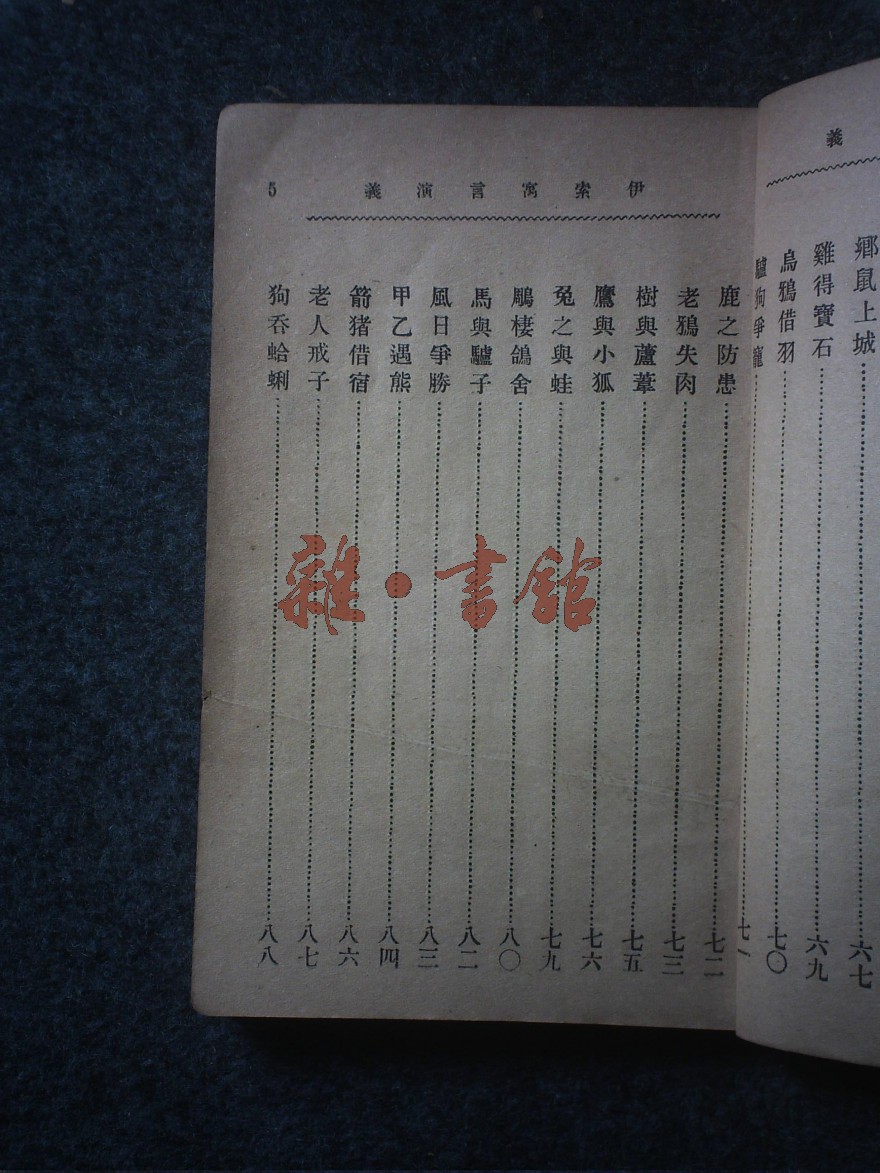 義
鄉鼠上城……六七
雞得寶石……六九
烏鴉借羽……七〇
驢狗爭寵……七一
伊索寓言演義 5
鹿之防患……七二
老鴉失肉……七三
樹與蘆葦……七五
鷹與小狐……七六
兔之與蛙……七九
鵰棲鴿舍……八〇
馬與驢子……八二
風日爭勝……八三
甲乙遇熊……八四
箭猪借宿……八六
老人戒子……八七
狗吞蛤蜊……八八
雜·書館